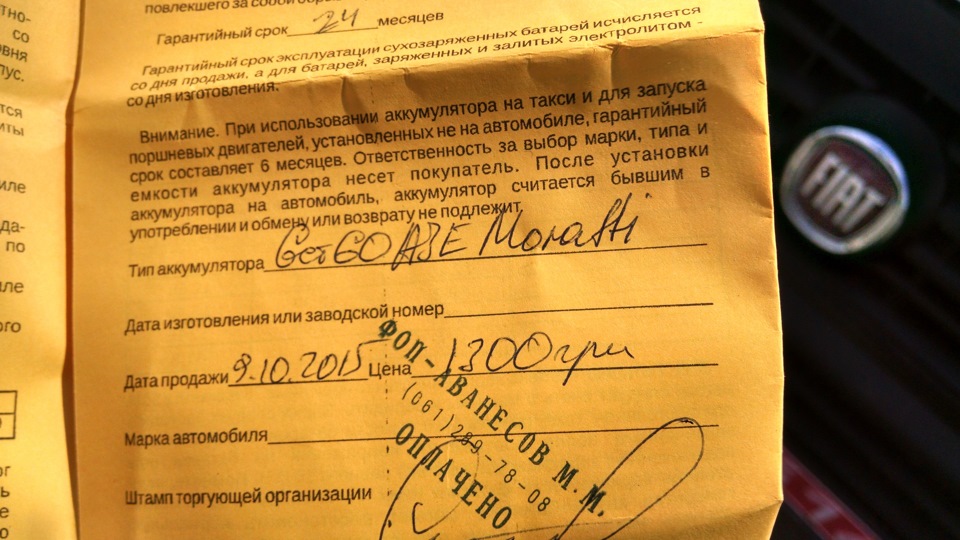 тно-
со
овня
пус.
тся
иты
иле
да-
по
иле
ого
ог
ь
е
о
повлекшего за собой
Гарантийный срок 24 месяцев
Гарантийный срок эксплуатации сухозаряженных батарей исчисляется
со дня продажи, а для батарей, заряженных и залитых электролитом -
со дня изготовления.
Внимание. При использовании аккумулятора на такси и для запуска
поршневых двигателей, установленных не на автомобиле, гарантийный
срок составляет 6 месяцев. Ответственность за выбор марки, типа и
емкости аккумулятора несет покупатель. После установки
аккумулятора на автомобиль, аккумулятор считается бывшим в
употреблении и обмену или возврату не подлежит.
Тип аккумулятора 6ст60 АЗЕ Moratti
Дата изготовления или заводской номер
Дата продажи 9.10.2015 Цена 1300грн
Марка автомобиля
Штамп торгующей организации
ФОП-АВАНЕСОВ М.М.
(061)289-78-08
ОПЛАЧЕНО
FIAT